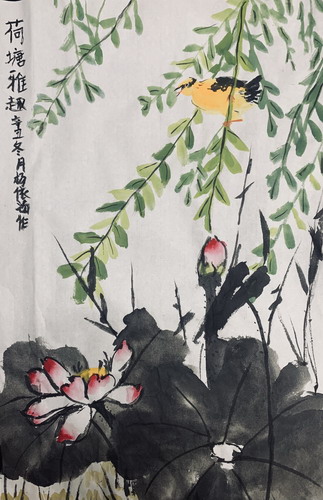 荷塘雅趣辛丑冬月杨依海作